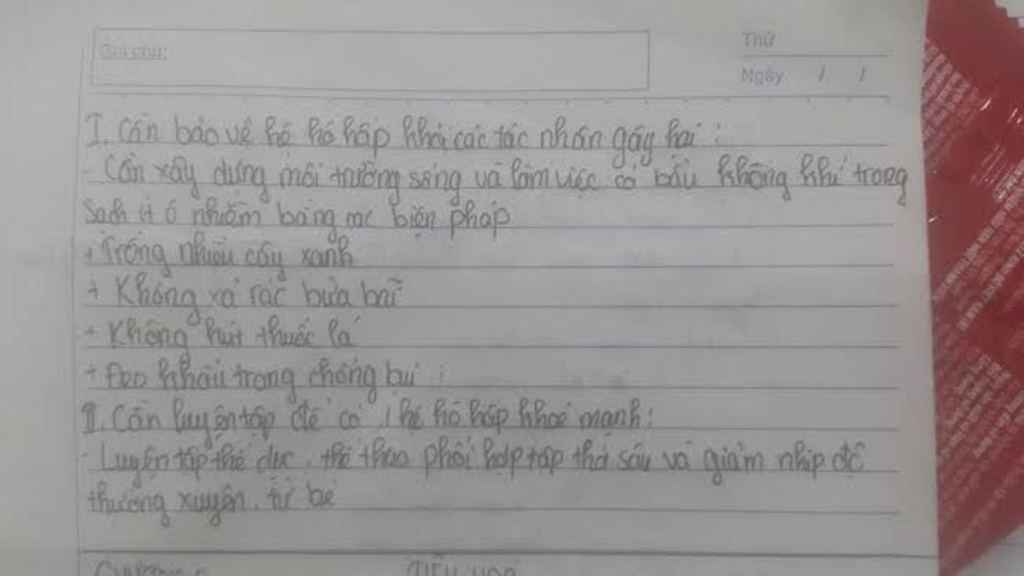 Ghi chú:
Thứ
Ngày / /
I. Cần bảo vệ hệ hô hấp khỏi các tác nhân gây hại :
- Cần xây dựng môi trường sống và làm việc có bầu không khí trong
sạch ít ô nhiễm bằng các biện pháp
+ Trồng nhiều cây xanh
+ Không xả rác bừa bãi
+ Không hút thuốc lá
+ Đeo khẩu trang chống bụi :
II. Cần luyện tập để có 1 hệ hô hấp khoẻ mạnh :
- Luyện tập thể dục, thể thao phối hợp tập thở sâu và giảm nhịp độ
thường xuyên, từ bé